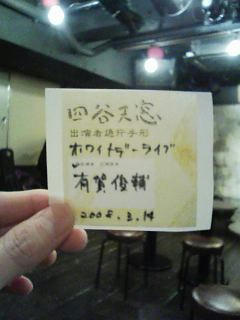 四谷天窓
出演者通行手形
ホワイトデーライブ
有賀俊輔
2008.3.14